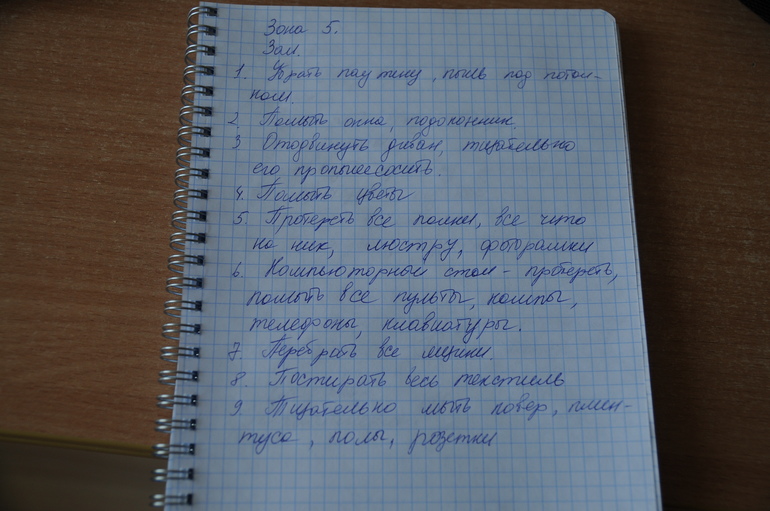 Зона 5.
Зал.
1. Убрать паутину, пыль под потол-
ком.
2. Помыть окна, подоконник.
3 Отодвинуть диван, тщательно
его пропылесосить.
4. Помыть цветы
5. Протереть все полки, все что
на них, люстру, фоторамки
6. Компьюторный стол - протереть,
помыть все пульты, компы,
телефоны, клавиатуры.
7. Перебрать все ящики.
8. Постирать весь текстиль
9. Тщательно мыть ковер, плин-
туса, полы, розетки